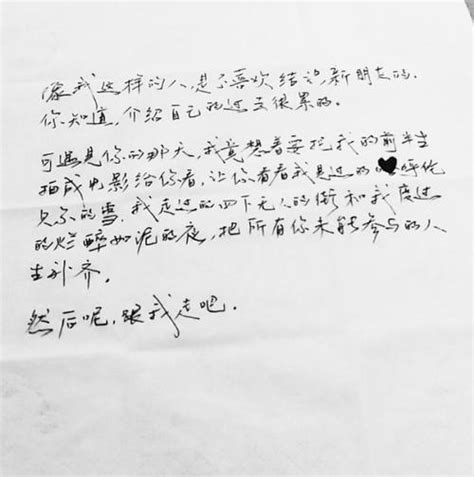 像我这样的人,是不喜欢结识新朋友的.
你知道,介绍自己的过去很累的.
可遇见你的那天,我竟想着要把我的前半生
拍成电影给你看,让你看看我见过的呼伦
贝尔的雪,我走过的四下无人的街和我度过
的烂醉如泥的夜,把所有你未能参与的人
生补齐.
然后呢,跟我走吧.